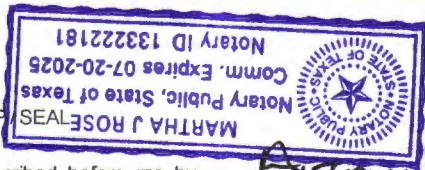 MARTHA J ROSE
Notary Public, State of Texas
Comm. Expires 07-20-2025
Notary ID 13322181
NOTARY PUBLIC
STATE OF TEXAS
SEAL
before me by